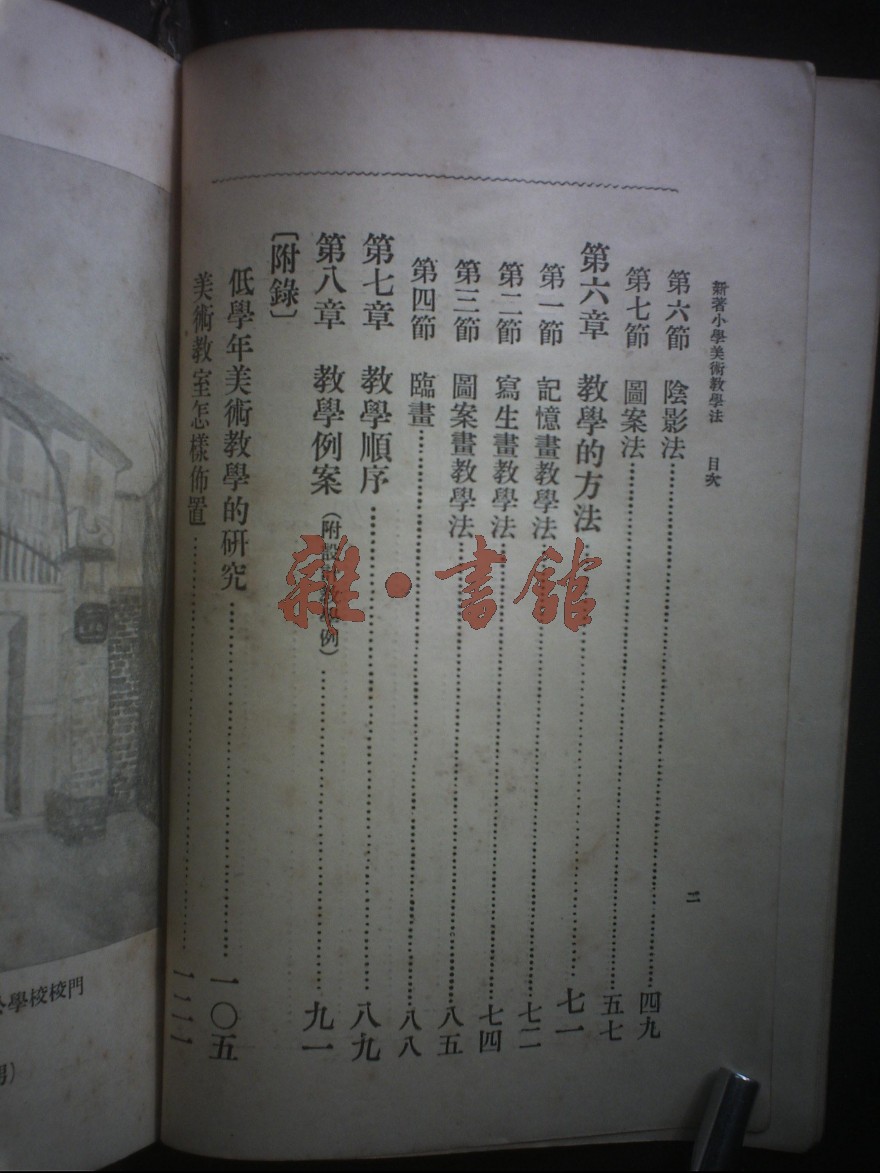 新著小學美術教學法 目次
二
第六節 陰影法 四九
第七節 圖案法 五七
第六章 教學的方法 七一
第一節 記憶畫教學法 七二
第二節 寫生畫教學法 七四
第三節 圖案畫教學法 八五
第四節 臨畫 八八
第七章 教學順序 八九
第八章 教學例案(附設計教學例) 九一
〔附錄〕
低學年美術教學的研究 一〇五
美術教室怎樣佈置
雜·書館
學校校門